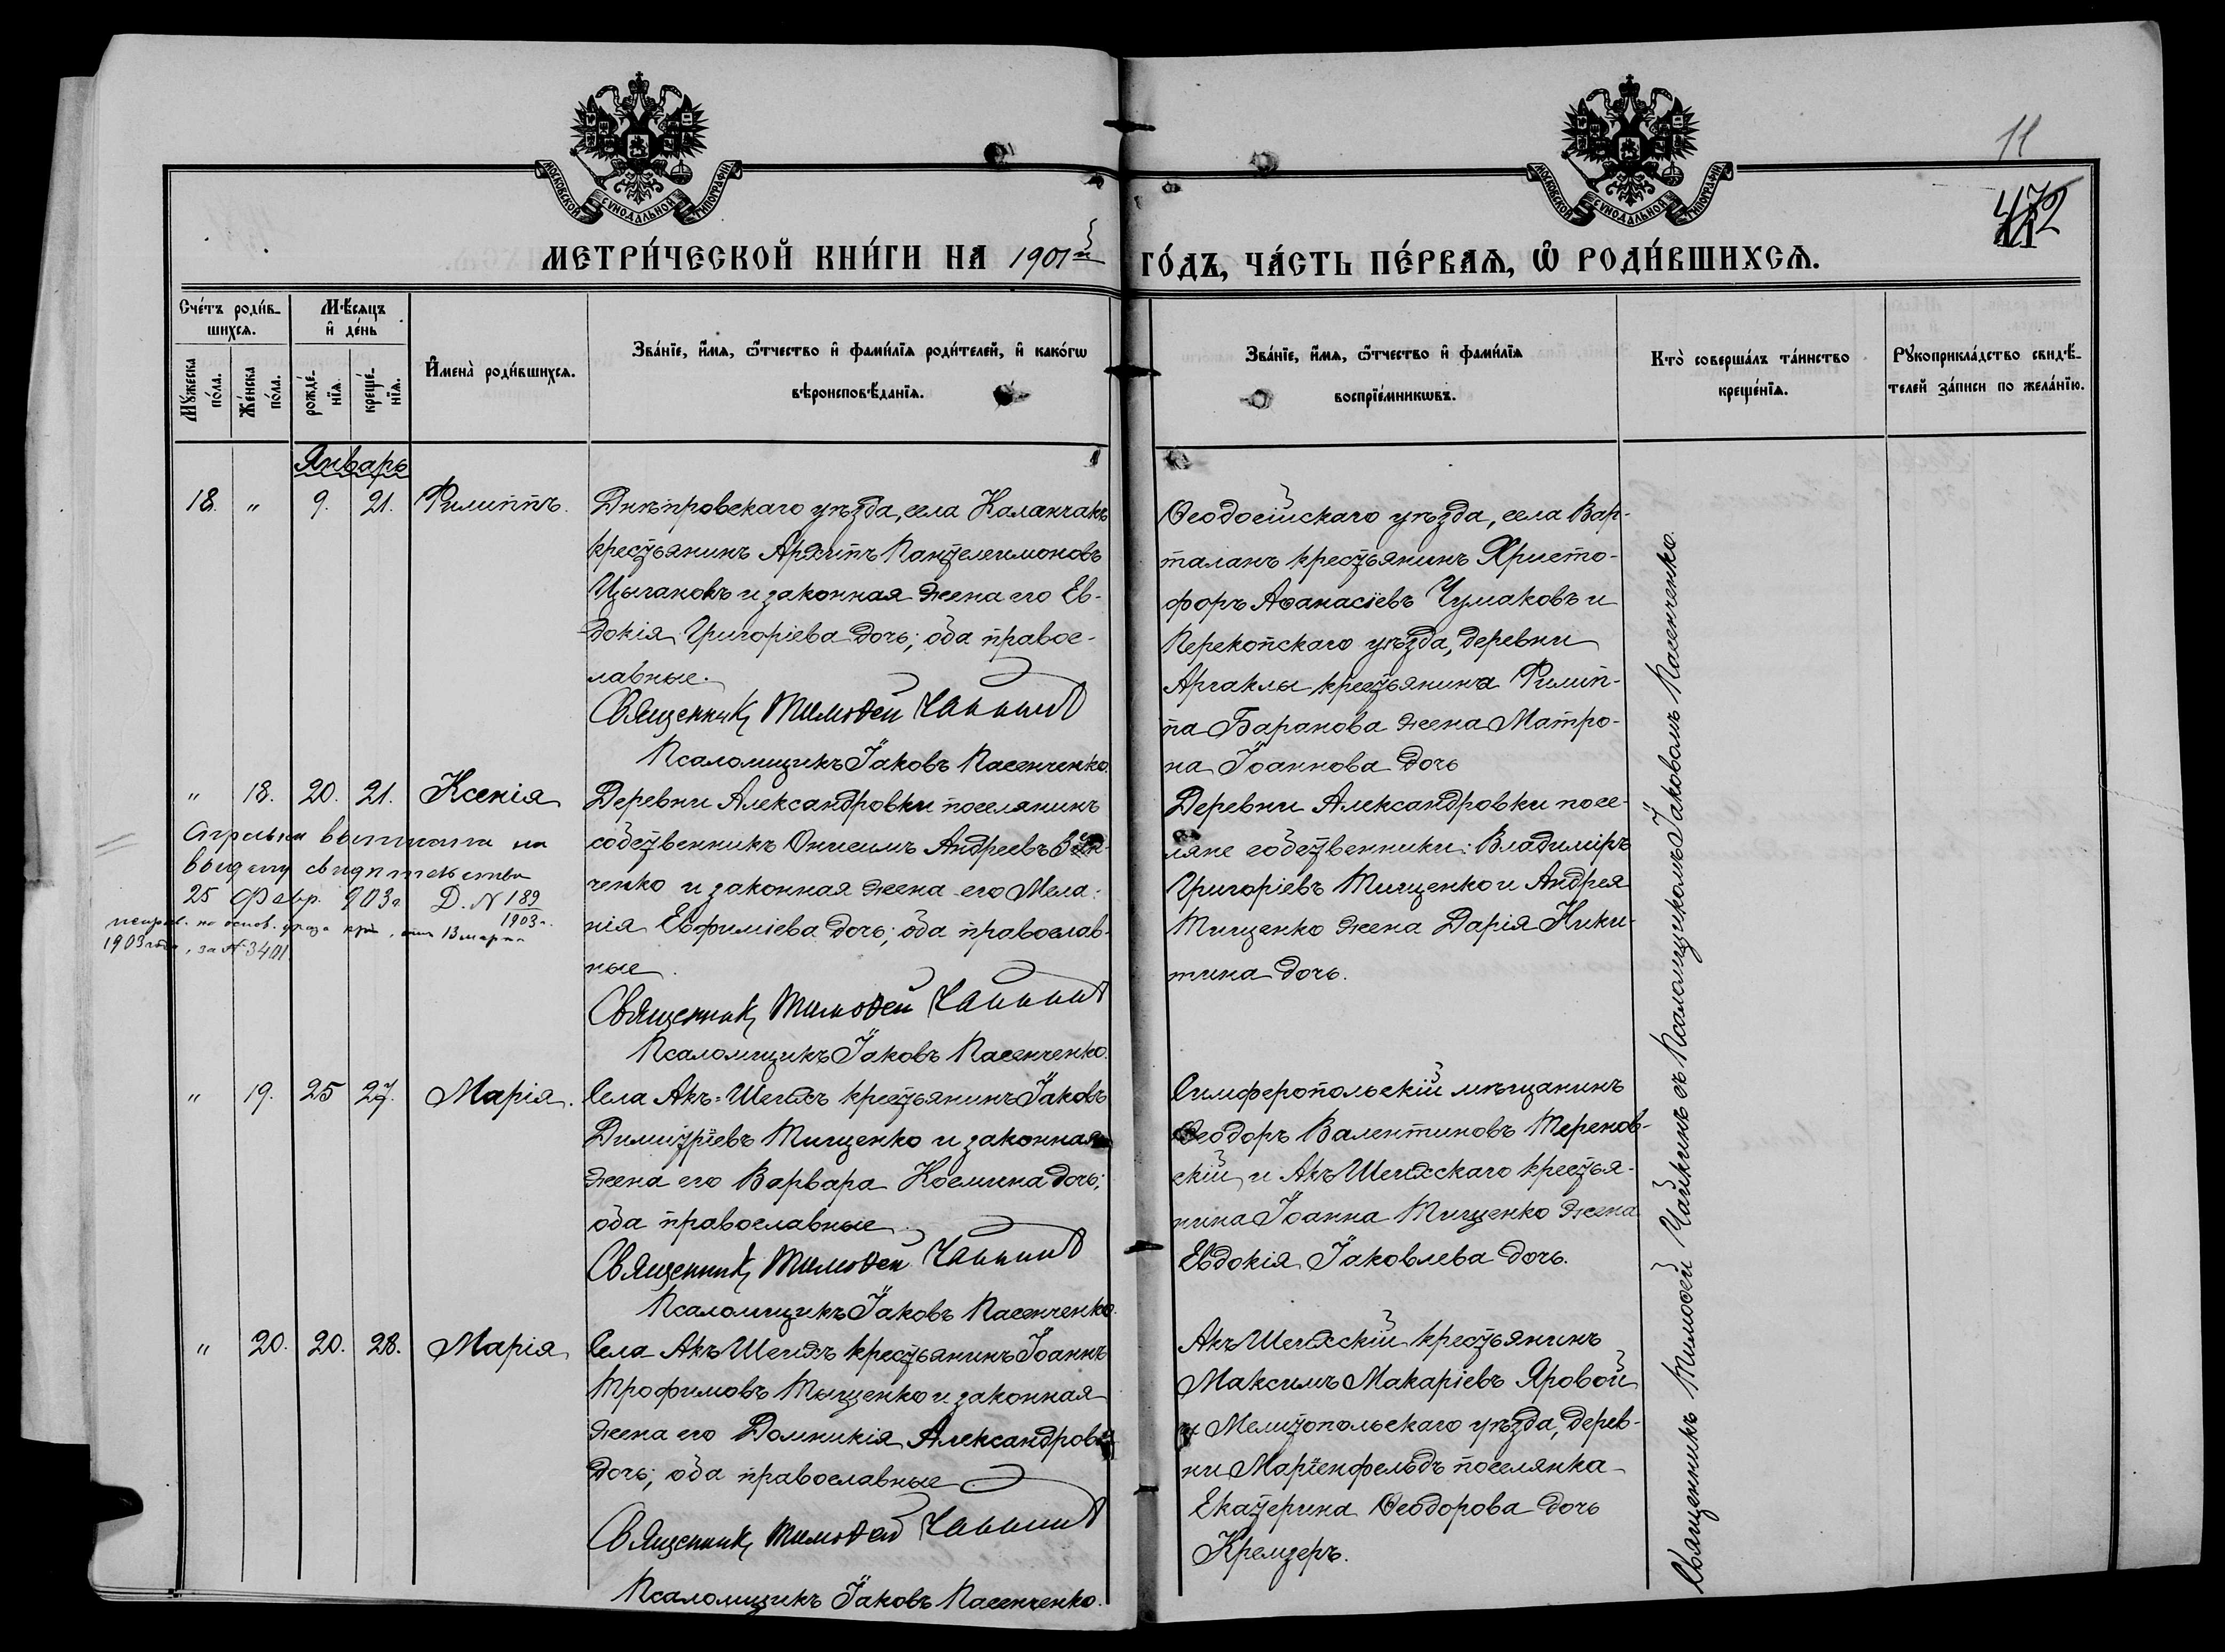 11
472
МОСКОВСКОЙ СѴНОДАЛЬНОЙ ТИПОГРАФІИ.
МОСКОВСКОЙ СѴНОДАЛЬНОЙ ТИПОГРАФІИ.
МЕТРИ́ЧЕСКОЙ КНИ́ГИ НА 1901й ГО́ДЪ, ЧА́СТЬ ПЕ́РВАѦ, Ѡ РОДИ́ВШИХСѦ.
Сче́тъ роди́в-
шихсѧ.
Мꙋ́жеска по́ла.
Же́нска по́ла.
Мѣ́сяцъ
и҆ де́нь
рожде́-нїѧ.
креще́-нїѧ.
И҆мена̀ роди́вшихсѧ.
Зва́нїе, и҆́мѧ, ѻ҆́тчество и҆ фами́лїѧ роди́телей, и҆ како́гѡ
вѣроисповѣ́данїѧ.
Зва́нїе, и҆́мѧ, ѻ҆́тчество и҆ фами́лїѧ
воспрїе́мникѡвъ.
Кто̀ соверша́лъ та́инство
креще́нїѧ.
Рꙋкоприкла́дство свидѣ́-
телей за́писи по жела́нїю.
Январь
18. " 9. 21. Филиппъ.
Днѣпровскаго уѣзда, села Каланчакъ
крестьянинъ Архипъ Пантелеимоновъ
Цыгановъ и законная жена его Ев-
докія Григоріева дочь; оба правос-
лавные.
Священникъ Тимоѳей Чайкинъ
Псаломщикъ Іаковъ Пасенченко.
Ѳеодосійскаго уѣзда, села Вар-
таланъ крестьянинъ Христо-
форъ Аѳанасіевъ Чумаковъ и
Перекопскаго уѣзда, деревни
Аргаклы крестьянина Филип-
па Баранова жена Матро-
на Іоаннова дочь
" 18. 20. 21. Ксенія
выписана на
выдачу свидѣтельства
25 Февр. 903г. Д. N 189
1903г.
исправ. на основ. указа отъ 13 марта
1903 года, за N 3401.
Деревни Александровки поселянинъ
собственникъ Онисимъ Андреевъ
ченко и законная жена его Мела-
нія Евфиміева дочь; оба православ-
ные.
Священникъ Тимоѳей Чайкинъ
Псаломщикъ Іаковъ Пасенченко.
Деревни Александровки посе-
ляне собственники: Владиміръ
Григоріевъ Тищенко и Андрея
Тищенко жена Дарія Ники-
тина дочь.
" 19. 25 27. Марія.
Села Акъ-Шеихъ крестьянинъ Іаковъ
Димитріевъ Тищенко и законная
жена его Варвара Космина дочь;
оба православные.
Священникъ Тимоѳей Чайкинъ
Псаломщикъ Іаковъ Пасенченко.
Симферопольскій мѣщанинъ
Ѳеодоръ Валентиновъ Теренов-
скій и Акъ Шеихскаго крестья-
нина Іоанна Тищенко жена
Евдокія Іаковлева дочь.
" 20. 20. 28. Марія
Села Акъ Шеихъ крестьянинъ Іоаннъ
Трофимовъ Тыщенко и законная
жена его Домникія Александрова
дочь; оба православные
Священникъ Тимоѳей Чайкинъ
Псаломщикъ Іаковъ Пасенченко.
Акъ Шеихскій крестьянинъ
Максимъ Макаріевъ Яровой
и Мелитопольскаго уѣзда, дерев-
ни Маріенфельдъ поселянка
Екатерина Ѳеодорова дочь
Кремзеръ.
Священникъ Тимоѳей Чайкинъ съ Псаломщикомъ Іаковомъ Пасенченко.